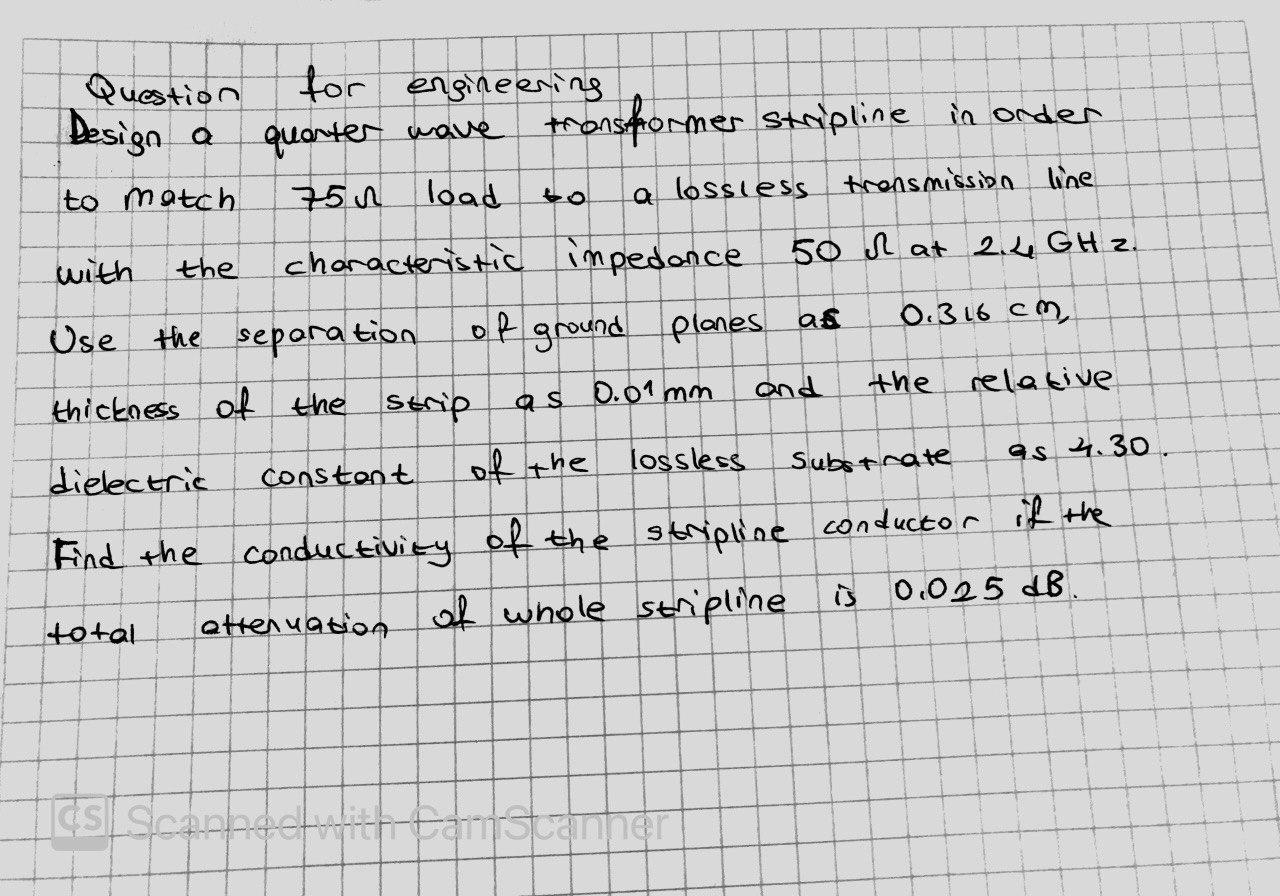 Question for engineering
Design a quarter wave transformer stripline in order
to match 75Ω load to a lossless transmission line
with the characteristic impedance 50 Ω at 2.4 GHz.
Use the separation of ground planes as 0.316 cm,
thickness of the strip as 0.01mm and the relative
dielectric constant of the lossless substrate as 4.30.
Find the conductivity of the stripline conductor if the
total attenuation of whole stripline is 0.025 dB.
CS Scanned with CamScanner